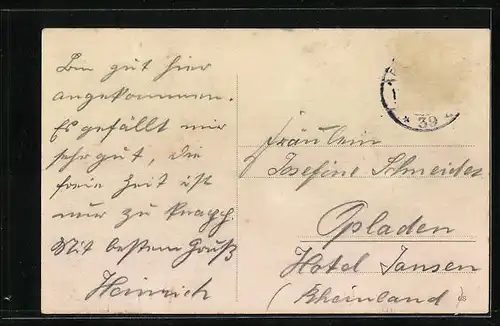 Bin gut hier
angekommen.
Es gefällt mir
sehr gut, die
freie Zeit ist
nur zu knapp.
Mit bestem Gruß
Heinrich
* 39
Fräulein
Josefine Schneider
Opladen
Hotel Jansen
(Rheinland)